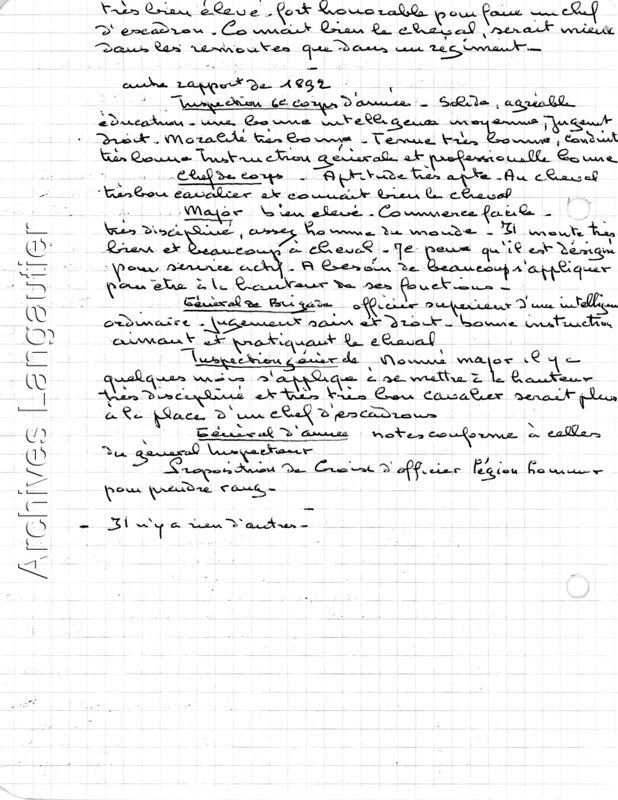 très bien élevé. fort honorable pour faire un chef
d'escadron. Connait bien le cheval, serait mieux
dans les remontes que dans un régiment -
-
autre rapport de 1892
Inspection 6e corps d'armée - Solide, agréable
éducation - une bonne intelligence moyenne, jugement
droit. Moralité très bonne - Tenue très bonne, conduite
très bonne Instruction générale et professionelle bonne
Chef de corps - Aptitude très apte. Au cheval
très bon cavalier et connait bien le cheval
Major bien elevé. Commerce facile -
très discipliné, assez homme du monde - Il monte très
bien et beaucoup à cheval - qu'il est désigné
pour service actif - A besoin de beaucoup s'appliquer
pour être à la hauteur de ses fonctions -
Général de Brigade officier superieur d'une intelligen
ordinaire - jugement sain et droit - bonne instruction
aimant et pratiquant le cheval
Inspection génér de Nommé major il y a
quelques mois s'applique à se mettre à la hauteur
très discipliné et très très bon cavalier serait plus
à la place d'un chef d'escadrons
Général d'armée notes conforme à celles
du général Inspecteur
Proposition de Croix d'officier Légion honneur
pour prendre rang -
- Il n'y a rien d'autres -
Archives Langautier